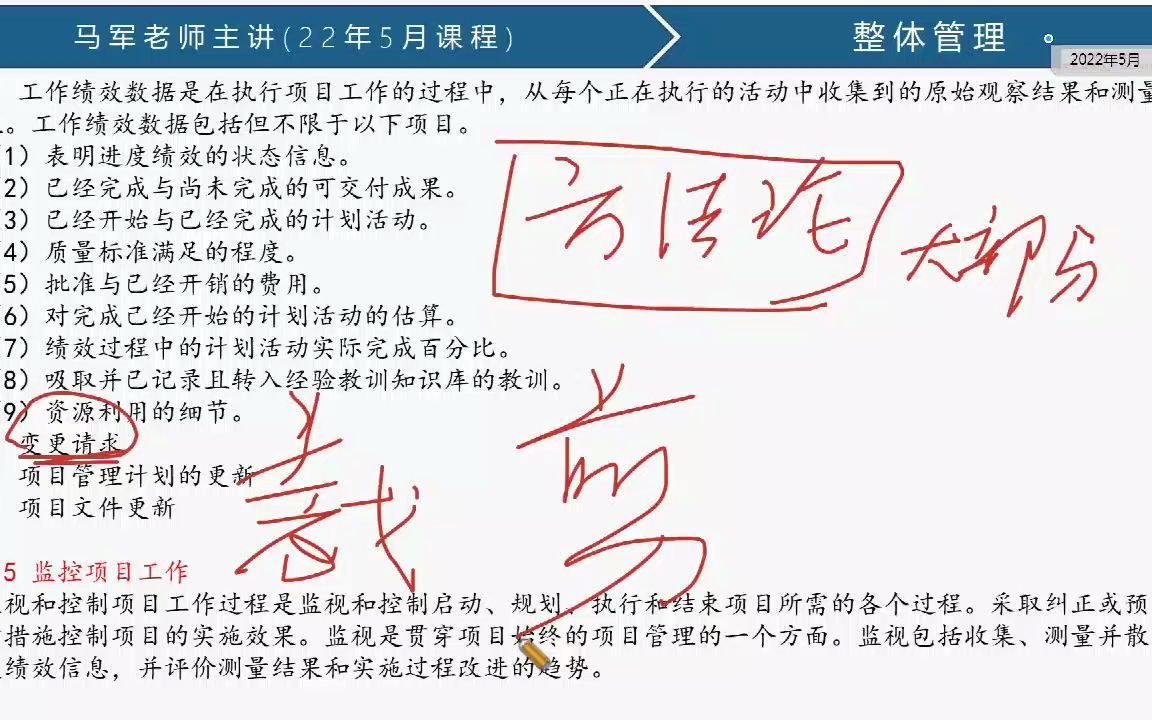 马军老师主讲(22年5月课程)
整体管理
2022年5月
工作绩效数据是在执行项目工作的过程中，从每个正在执行的活动中收集到的原始观察结果和测量
。工作绩效数据包括但不限于以下项目。
1）表明进度绩效的状态信息。
2）已经完成与尚未完成的可交付成果。
3）已经开始与已经完成的计划活动。
4）质量标准满足的程度。
5）批准与已经开销的费用。
6）对完成已经开始的计划活动的估算。
7）绩效过程中的计划活动实际完成百分比。
8）吸取并已记录且转入经验教训知识库的教训。
9）资源利用的细节。
变更请求
项目管理计划的更新
项目文件更新
方法论
大部分
裁
剪
5 监控项目工作
视和控制项目工作过程是监视和控制启动、规划、执行和结束项目所需的各个过程。采取纠正或预
措施控制项目的实施效果。监视是贯穿项目始终的项目管理的一个方面。监视包括收集、测量并散
绩效信息，并评价测量结果和实施过程改进的趋势。